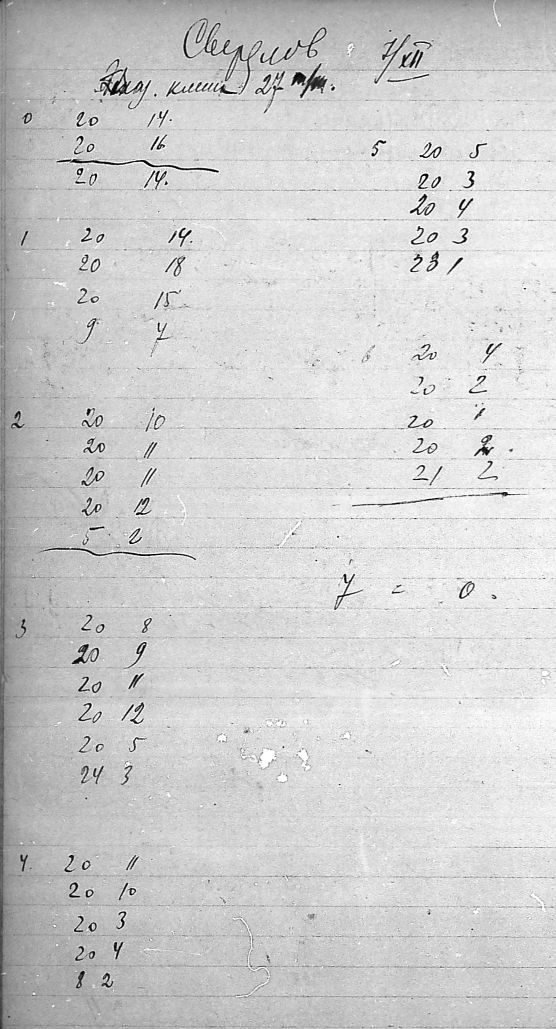 Свердлов 7/XII
клише 27 m/m.
0 20 14.
20 16
20 14.
1 20 14.
20 18
20 15
9 7
2 20 10
20 11
20 11
20 12
5 2
3 20 8
20 9
20 11
20 12
20 5
24 3
4. 20 11
20 10
20 3
20 4
8 2
5 20 5
20 3
20 4
20 3
23 1
6 20 4
20 2
20 1
20 2.
21 2
7 = 0.